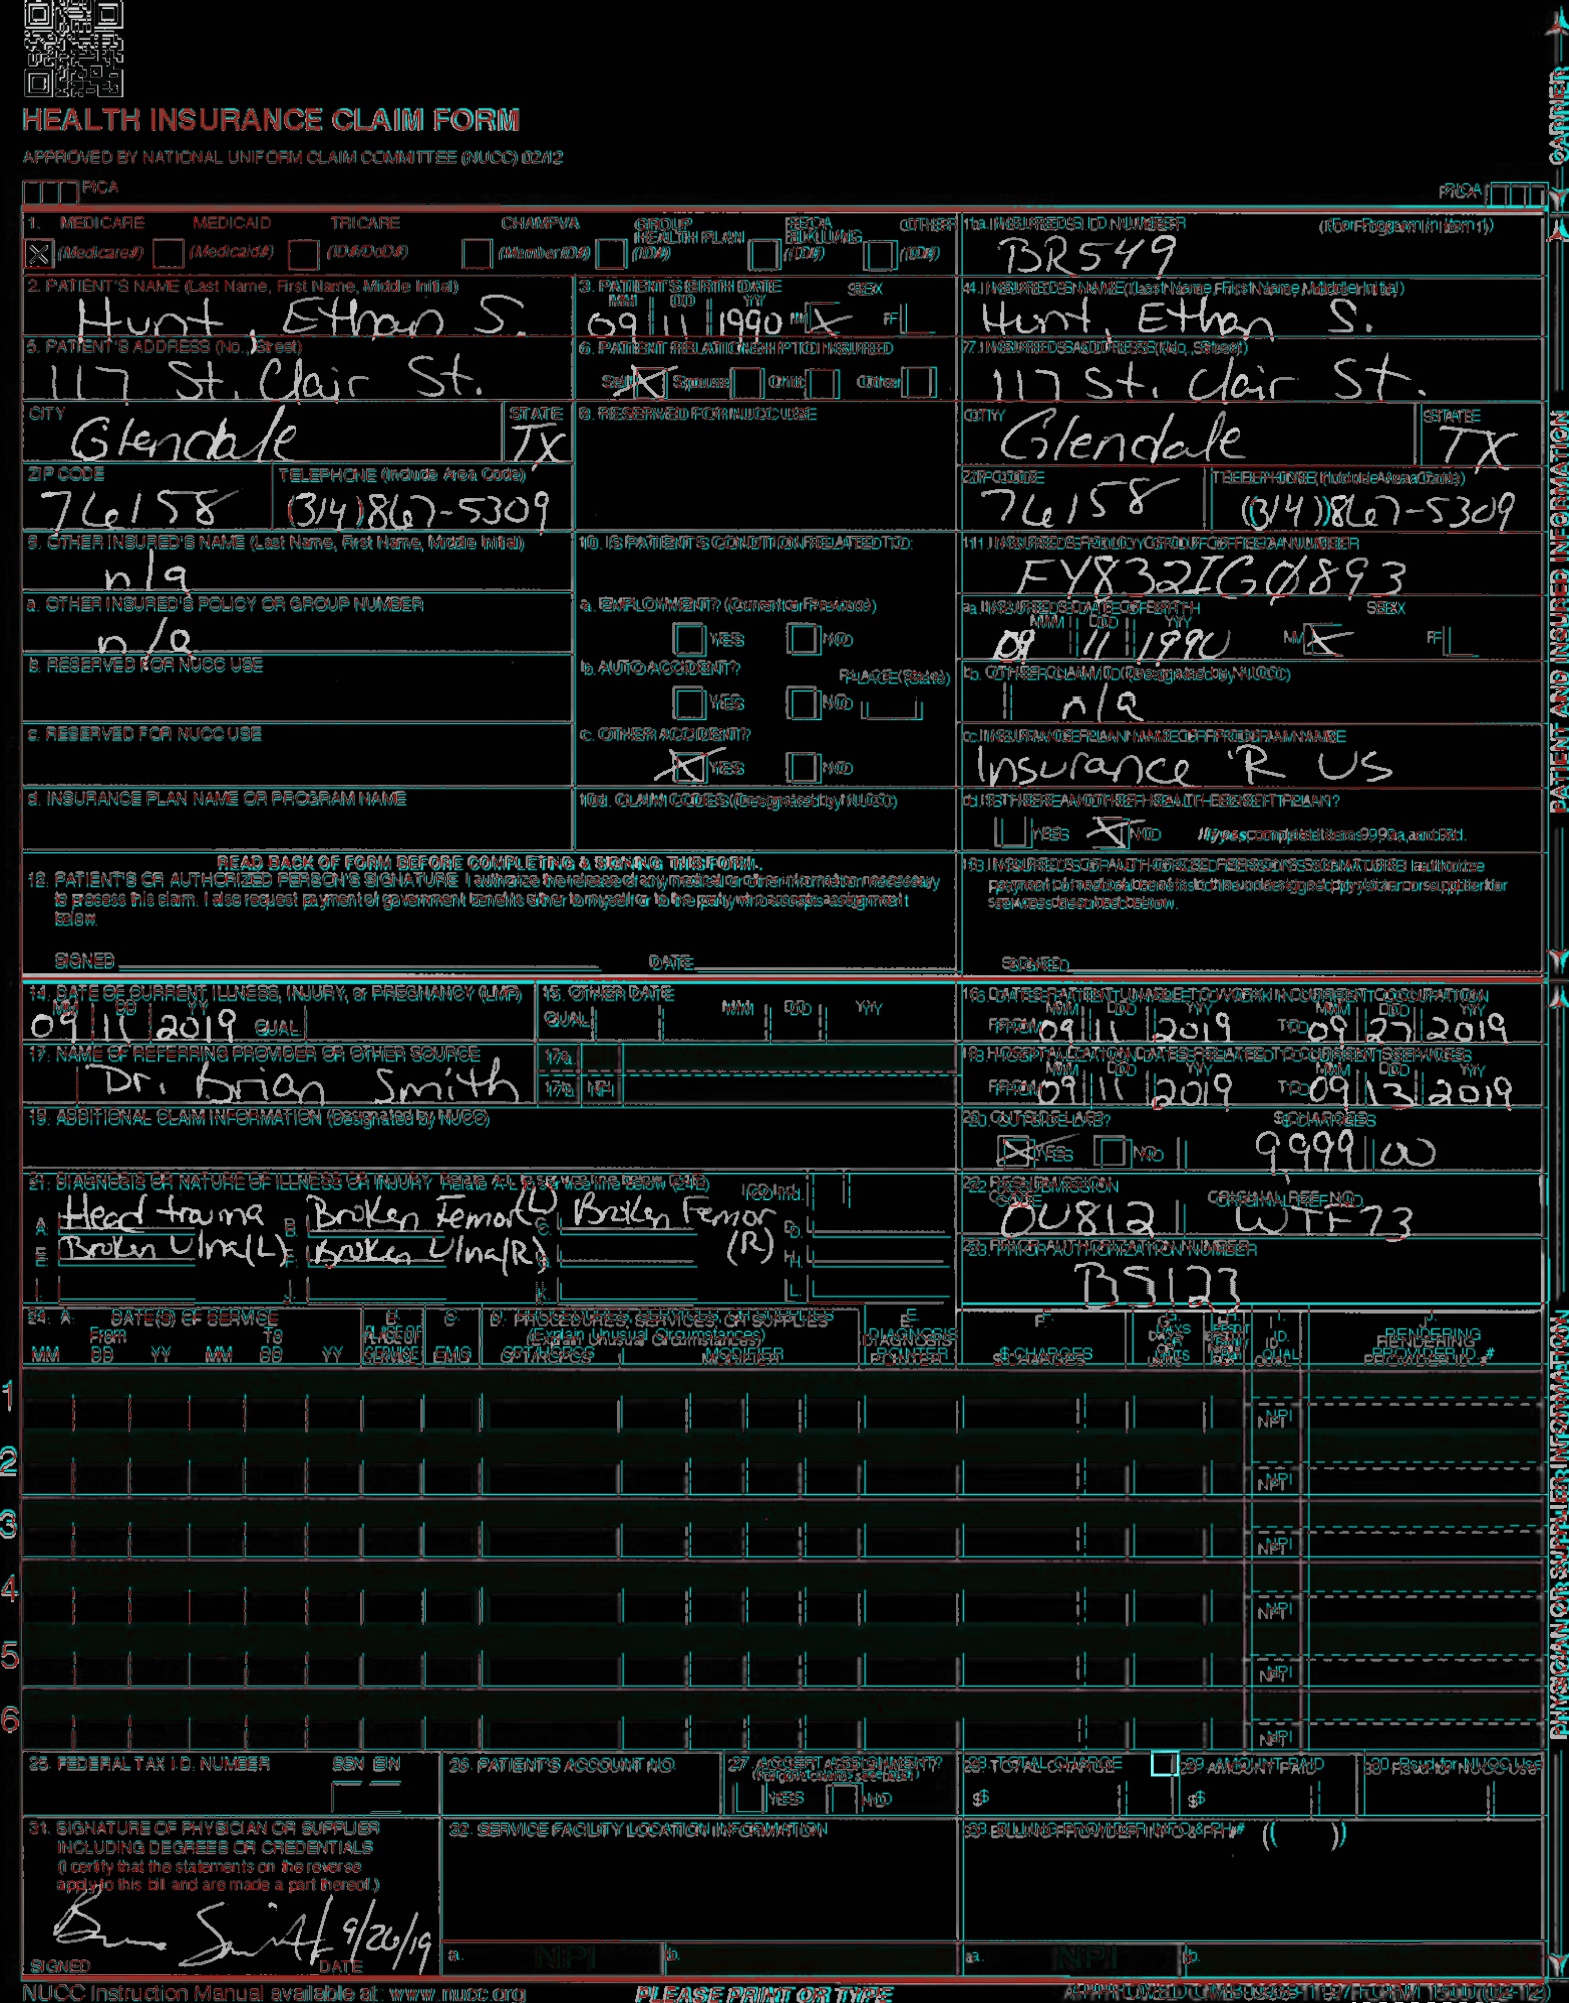 HEALTH INSURANCE CLAIM FORM
APPROVED BY NATIONAL UNIFORM CLAIM COMMITTEE (NUCC) 02/12
PICA
PICA
CARRIER
1. MEDICARE MEDICAID TRICARE CHAMPVA GROUP HEALTH PLAN FECA BLK LUNG OTHER
(Medicare#) (Medicaid#) (ID#/DoD#) (Member ID#) (ID#) (ID#) (ID#)
1a. INSURED'S I.D. NUMBER (For Program in Item 1)
BR549
2. PATIENT'S NAME (Last Name, First Name, Middle Initial)
Hunt, Ethan S.
3. PATIENT'S BIRTH DATE SEX
MM DD YY
09 11 1990 M X F
4. INSURED'S NAME (Last Name, First Name, Middle Initial)
Hunt, Ethan S.
5. PATIENT'S ADDRESS (No., Street)
117 St. Clair St.
6. PATIENT RELATIONSHIP TO INSURED
Self X Spouse Child Other
7. INSURED'S ADDRESS (No., Street)
117 St. Clair St.
CITY STATE
Glendale TX
8. RESERVED FOR NUCC USE
CITY STATE
Glendale TX
ZIP CODE TELEPHONE (Include Area Code)
76158 (314)867-5309
ZIP CODE TELEPHONE (Include Area Code)
76158 (314)867-5309
9. OTHER INSURED'S NAME (Last Name, First Name, Middle Initial)
n/a
10. IS PATIENT'S CONDITION RELATED TO:
11. INSURED'S POLICY GROUP OR FECA NUMBER
FY832IGØ893
a. OTHER INSURED'S POLICY OR GROUP NUMBER
n/a
a. EMPLOYMENT? (Current or Previous)
YES NO
a. INSURED'S DATE OF BIRTH SEX
MM DD YY
09 11 1990 M X F
b. RESERVED FOR NUCC USE
b. AUTO ACCIDENT? PLACE (State)
YES NO
b. OTHER CLAIM ID (Designated by NUCC)
n/a
c. RESERVED FOR NUCC USE
c. OTHER ACCIDENT?
X YES NO
c. INSURANCE PLAN NAME OR PROGRAM NAME
Insurance 'R US
d. INSURANCE PLAN NAME OR PROGRAM NAME
10d. CLAIM CODES (Designated by NUCC)
d. IS THERE ANOTHER HEALTH BENEFIT PLAN?
YES X NO If yes, complete items 9, 9a, and 9d.
PATIENT AND INSURED INFORMATION
READ BACK OF FORM BEFORE COMPLETING & SIGNING THIS FORM.
12. PATIENT'S OR AUTHORIZED PERSON'S SIGNATURE I authorize the release of any medical or other information necessary
to process this claim. I also request payment of government benefits either to myself or to the party who accepts assignment
below.
SIGNED DATE
13. INSURED'S OR AUTHORIZED PERSON'S SIGNATURE I authorize
payment of medical benefits to the undersigned physician or supplier for
services described below.
SIGNED
14. DATE OF CURRENT ILLNESS, INJURY, or PREGNANCY (LMP)
MM DD YY
09 11 2019 QUAL.
15. OTHER DATE
QUAL. MM DD YY
16. DATES PATIENT UNABLE TO WORK IN CURRENT OCCUPATION
MM DD YY MM DD YY
FROM 09 11 2019 TO 09 27 2019
17. NAME OF REFERRING PROVIDER OR OTHER SOURCE
Dr. Brian Smith
17a.
17b. NPI
18. HOSPITALIZATION DATES RELATED TO CURRENT SERVICES
MM DD YY MM DD YY
FROM 09 11 2019 TO 09 13 2019
19. ADDITIONAL CLAIM INFORMATION (Designated by NUCC)
20. OUTSIDE LAB? $ CHARGES
X YES NO 9999 00
21. DIAGNOSIS OR NATURE OF ILLNESS OR INJURY Relate A-L to service line below (24E) ICD Ind.
A. Head trauma B. Broken Femor(L) C. Broken Femor (R) D.
E. Broken Ulna(L) F. Broken Ulna(R) G. H.
I. J. K. L.
22. RESUBMISSION CODE ORIGINAL REF. NO.
OU812 WTF73
23. PRIOR AUTHORIZATION NUMBER
BS123
24. A. DATE(S) OF SERVICE B. C. D. PROCEDURES, SERVICES, OR SUPPLIES E. F. G. H. I. J.
From To PLACE OF SERVICE EMG (Explain Unusual Circumstances) DIAGNOSIS POINTER $ CHARGES DAYS OR UNITS EPSDT Family Plan ID. QUAL. RENDERING PROVIDER ID. #
MM DD YY MM DD YY CPT/HCPCS MODIFIER
1 NPI
2 NPI
3 NPI
4 NPI
5 NPI
6 NPI
PHYSICIAN OR SUPPLIER INFORMATION
25. FEDERAL TAX I.D. NUMBER SSN EIN
26. PATIENT'S ACCOUNT NO.
27. ACCEPT ASSIGNMENT?
(For govt. claims, see back)
YES NO
28. TOTAL CHARGE
$
29. AMOUNT PAID
$
30. Rsvd for NUCC Use
31. SIGNATURE OF PHYSICIAN OR SUPPLIER
INCLUDING DEGREES OR CREDENTIALS
(I certify that the statements on the reverse
apply to this bill and are made a part thereof.)
9/26/19
SIGNED DATE
32. SERVICE FACILITY LOCATION INFORMATION
a. NPI b.
33. BILLING PROVIDER INFO & PH # ( )
a. NPI b.
NUCC Instruction Manual available at: www.nucc.org
PLEASE PRINT OR TYPE
APPROVED OMB-0938-1197 FORM 1500 (02-12)